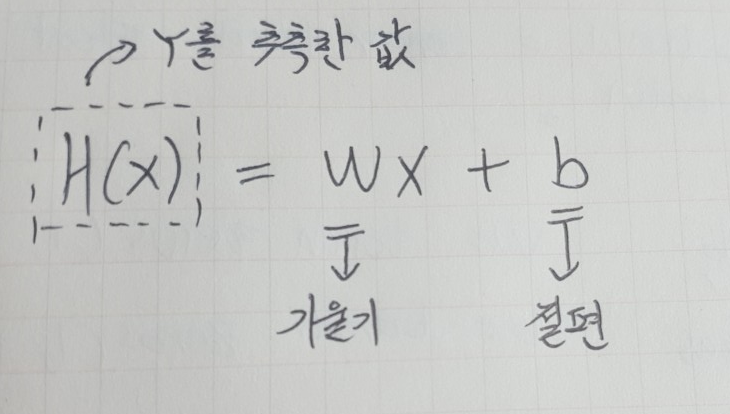 Y를 추측한 값
H(x) = Wx + b
기울기 절편